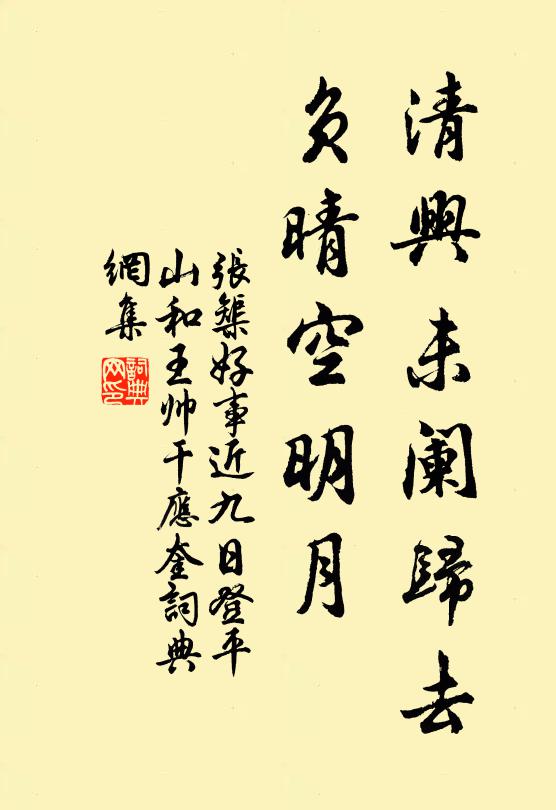 清興未阑歸去
负晴空明月
張榘好事近九日登平
山和王帅干應奎詞典
網集
詞典
网印